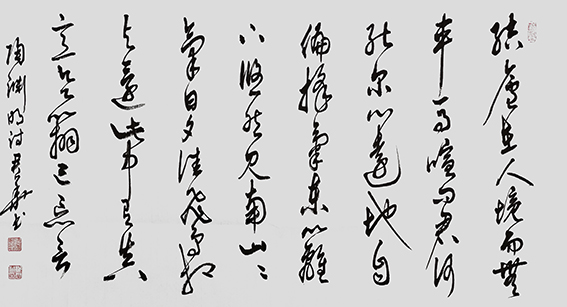 結廬在人境而無
車馬喧問君何
能尔心遠地自
偏採菊東籬
下悠然見南山〻
氣日夕佳飛鳥相
与還此中有真
意欲辨已忘言
陶渊明诗 书